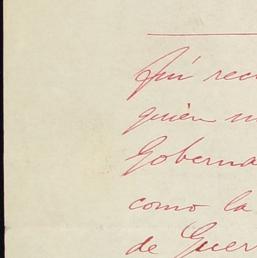 Fuí rec
quien m
Goberna
como la
de Guer